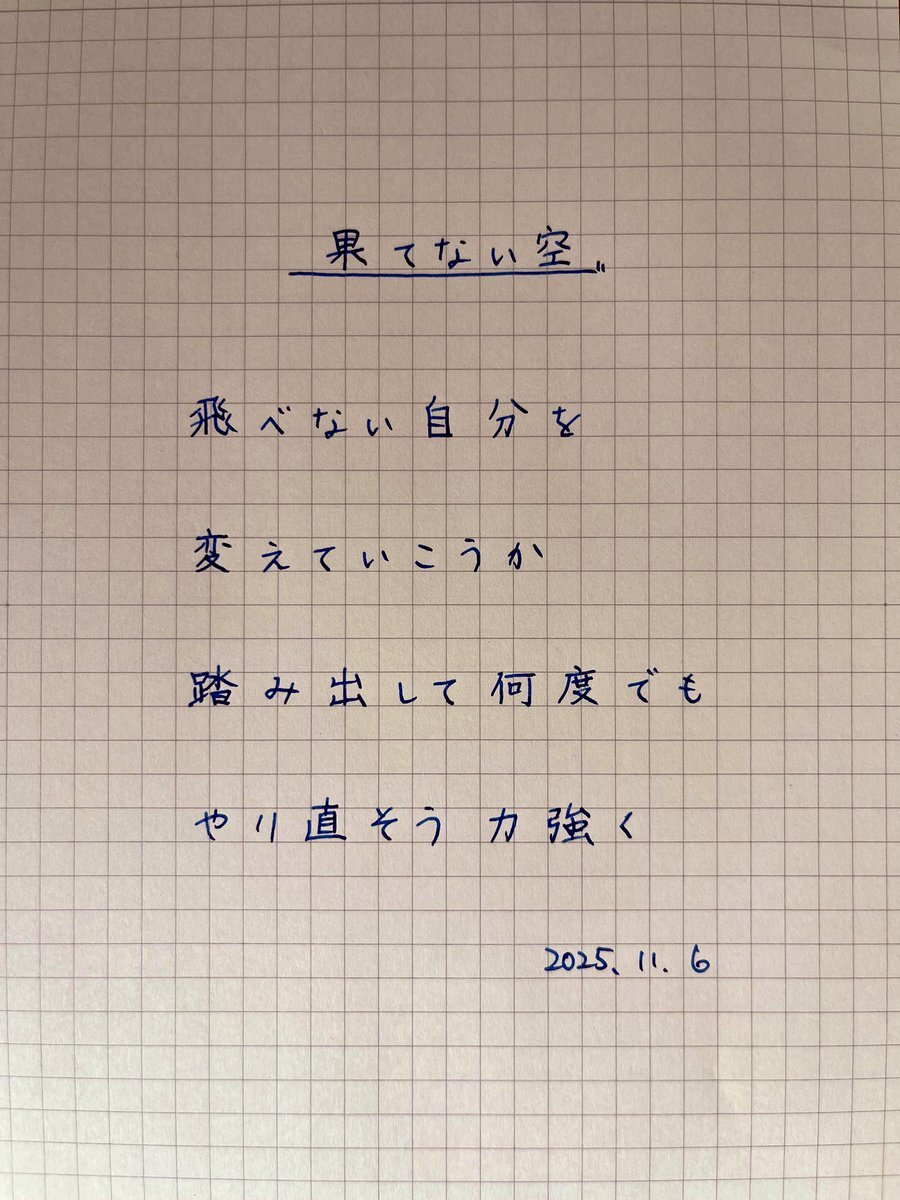 果てない空
飛べない自分を
変えていこうか
踏み出して何度でも
やり直そう力強く
2025.11.6